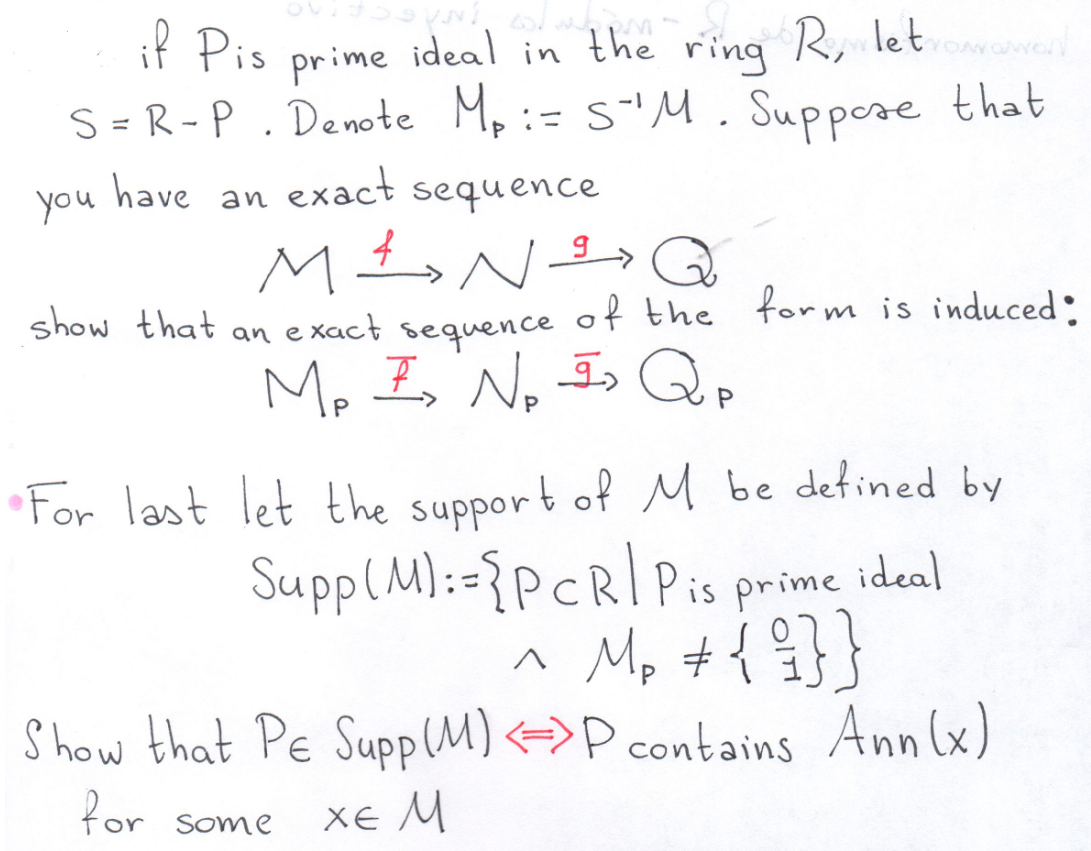 if P is prime ideal in the ring R, let
S = R - P . Denote Mₚ := S⁻¹M . Suppose that
you have an exact sequence
M f→ N g→ Q
show that an exact sequence of the form is induced:
Mₚ f̅→ Nₚ g̅→ Qₚ
• For last let the support of M be defined by
Supp(M) := {P ⊂ R | P is prime ideal
∧ Mₚ ≠ {0/1}}
Show that P ∈ Supp(M) ⟺ P contains Ann(x)
for some x ∈ M